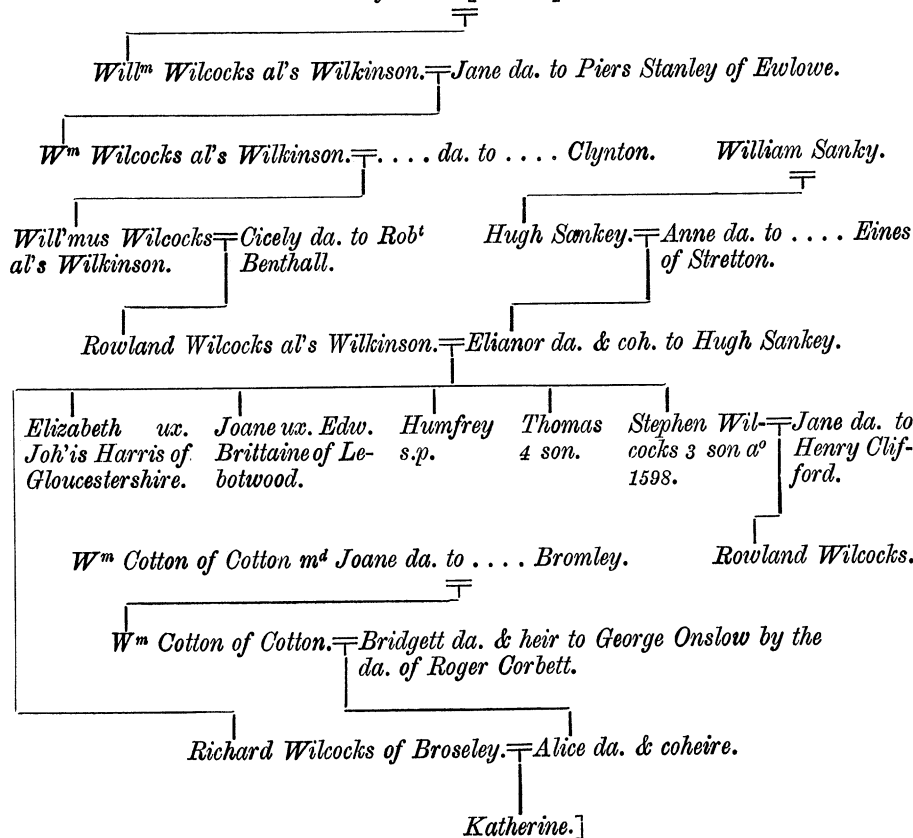 Willᵐ Wilcocks al's Wilkinson. Jane da. to Piers Stanley of Ewlowe.
Wᵐ Wilcocks al's Wilkinson. . . . . da. to . . . . Clynton.
William Sanky.
Will'mus Wilcocks
al's Wilkinson.
Cicely da. to Robᵗ
Benthall.
Hugh Sankey.
Anne da. to . . . . Eines
of Stretton.
Rowland Wilcocks al's Wilkinson. Elianor da. & coh. to Hugh Sankey.
Elizabeth ux.
Joh'is Harris of
Gloucestershire.
Joane ux. Edw.
Brittaine of Le-
botwood.
Humfrey
s.p.
Thomas
4 son.
Stephen Wil-
cocks 3 son aº
1598.
Jane da. to
Henry Clif-
ford.
Rowland Wilcocks.
Wᵐ Cotton of Cotton mᵈ Joane da. to . . . . Bromley.
Wᵐ Cotton of Cotton.
Bridgett da. & heir to George Onslow by the
da. of Roger Corbett.
Richard Wilcocks of Broseley. Alice da. & coheire.
Katherine.]